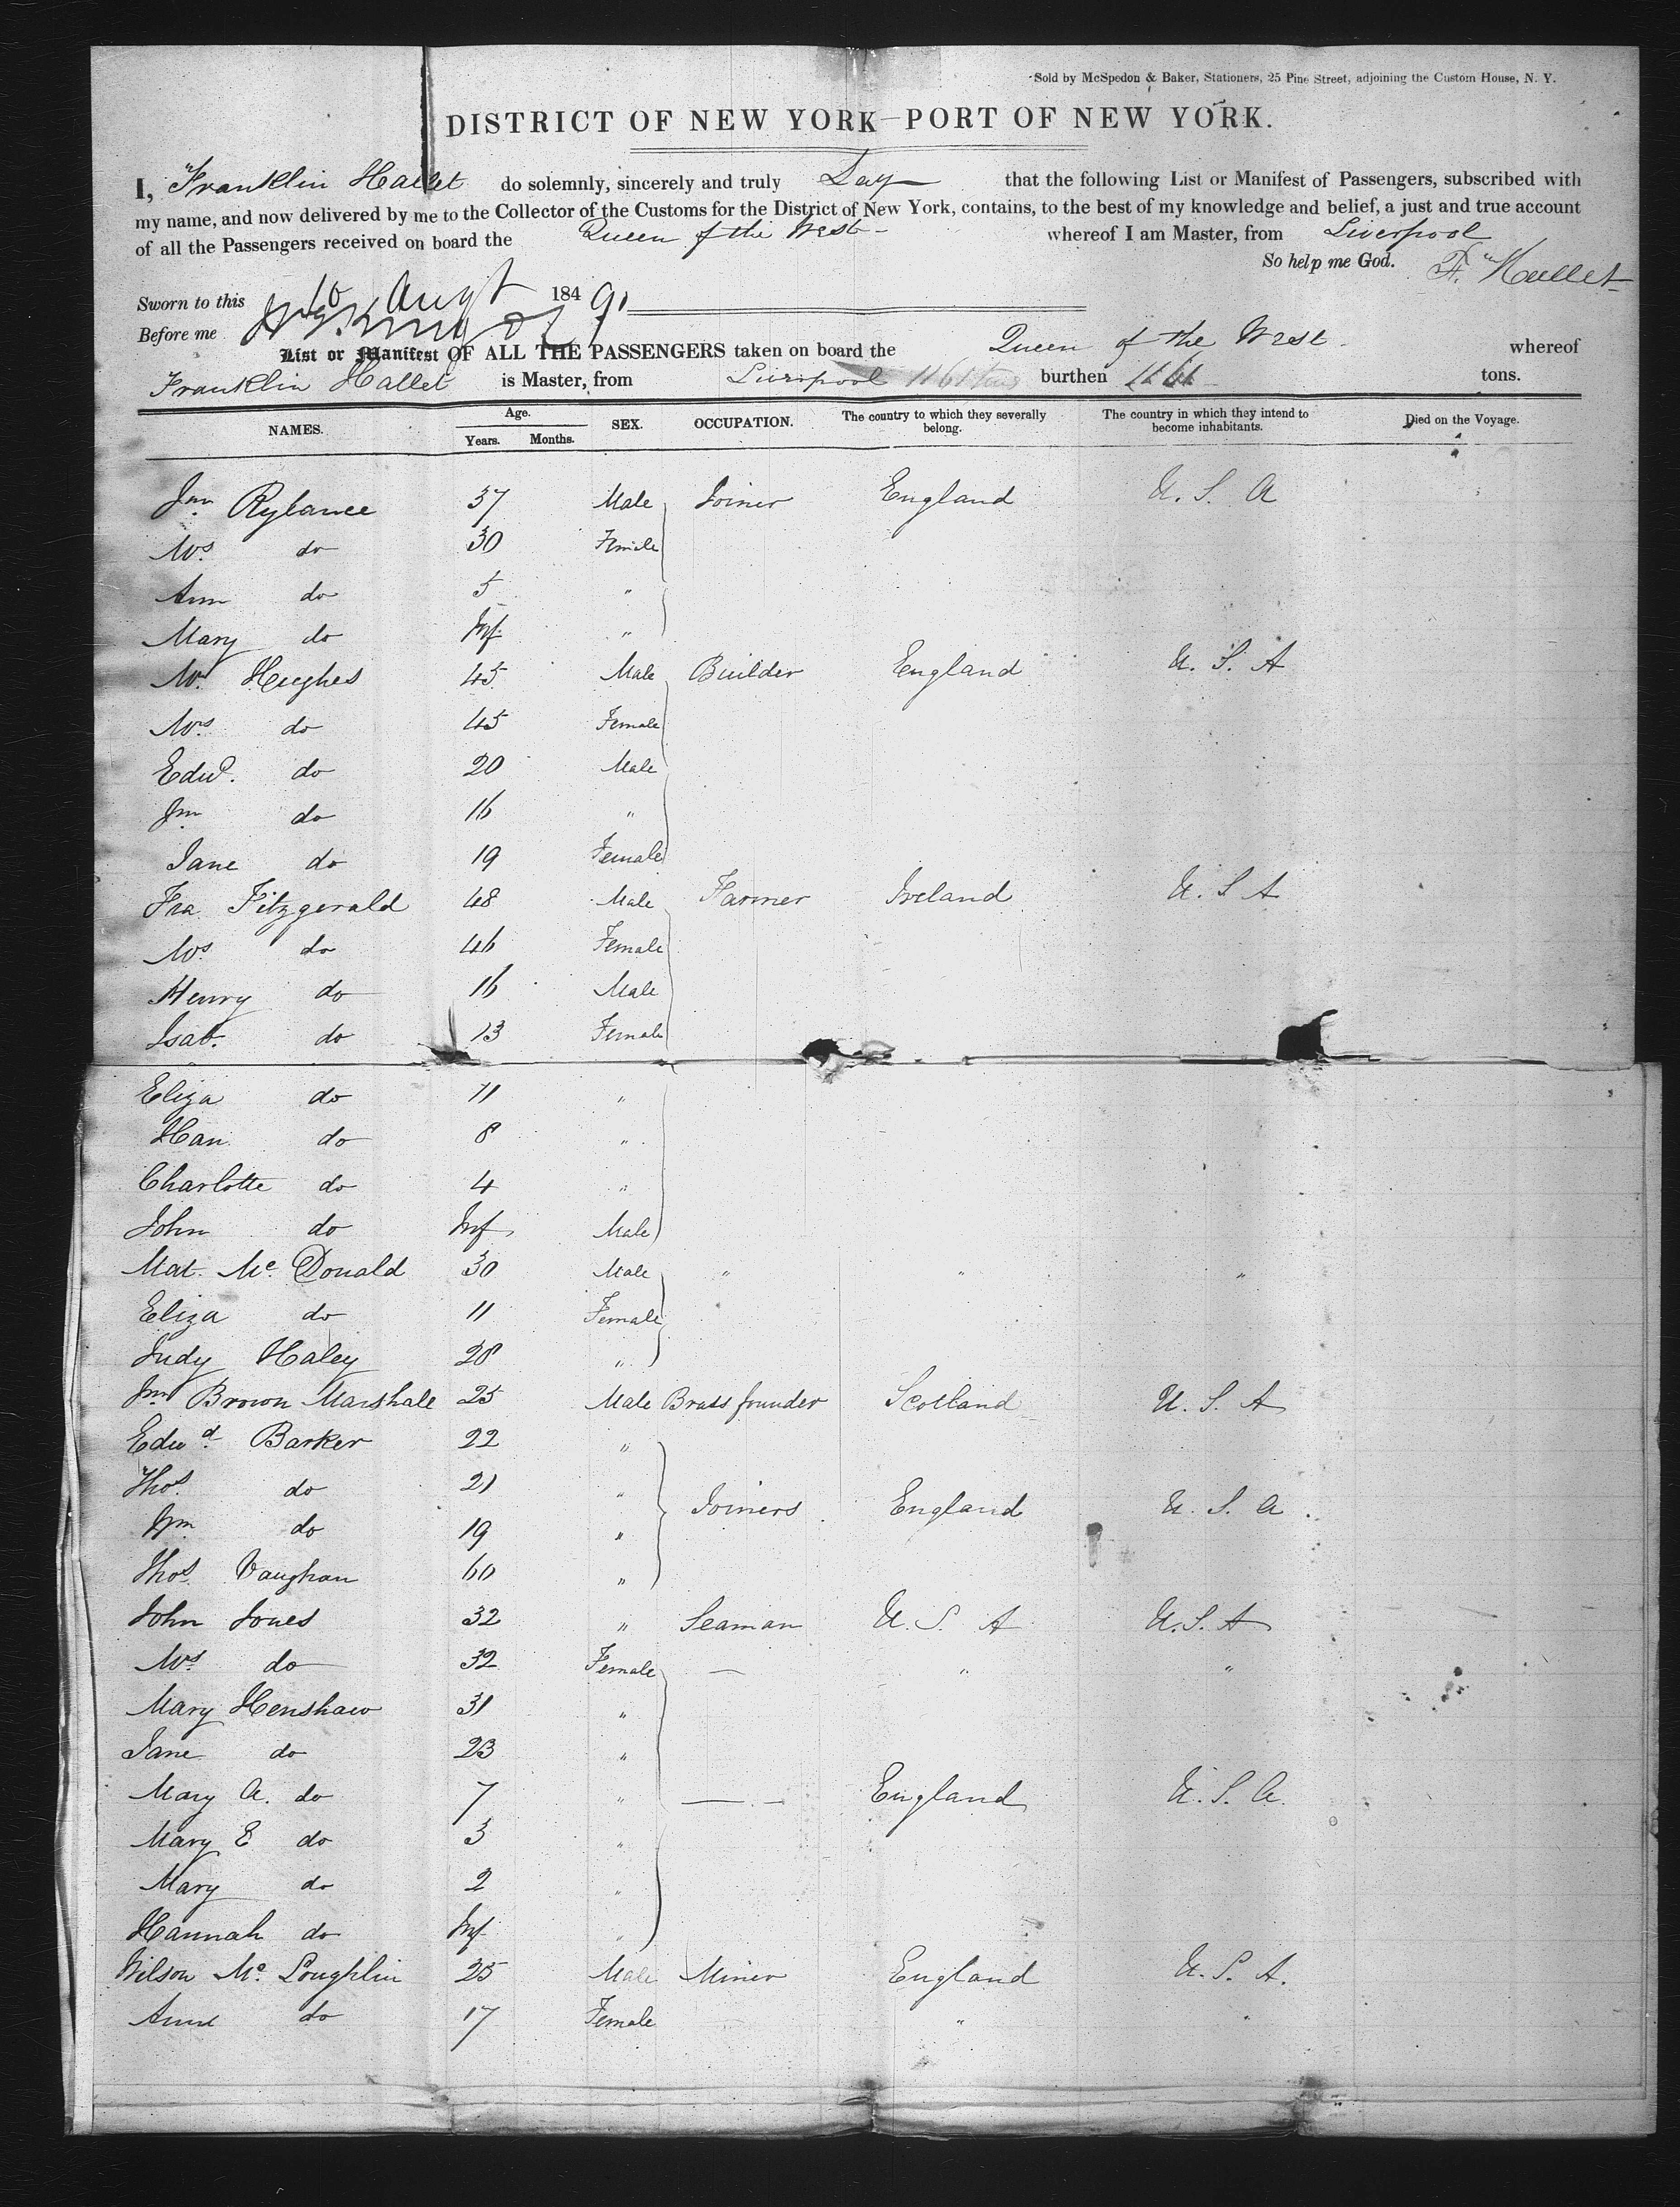 Sold by McSpedon & Baker, Stationers, 25 Pine Street, adjoining the Custom House, N. Y.
DISTRICT OF NEW YORK—PORT OF NEW YORK.
I, Franklin Hallet do solemnly, sincerely and truly Say that the following List or Manifest of Passengers, subscribed with
my name, and now delivered by me to the Collector of the Customs for the District of New York, contains, to the best of my knowledge and belief, a just and true account
of all the Passengers received on board the Queen of the West whereof I am Master, from Liverpool
So help me God. F. Hallet
Sworn to this 10 Augt 1849
Before me
List or Manifest OF ALL THE PASSENGERS taken on board the Queen of the West whereof
Franklin Hallet is Master, from Liverpool 1161 tons burthen 1161 tons.
NAMES. Age. Years. Months. SEX. OCCUPATION. The country to which they severally belong. The country in which they intend to become inhabitants. Died on the Voyage.
Jnn Rylance 37 Male Joiner England U. S. A
Mrs do 30 Female
Ann do 5 "
Mary do Inf. "
Mr Hughes 45 Male Builder England U. S. A
Mrs do 45 Female
Edwd. do 20 Male
Jnn do 16 "
Jane do 19 Female
Fra Fitzgerald 48 Male Farmer Ireland U. S. A
Mrs do 46 Female
Henry do 16 Male
Isab. do 13 Female
Eliza do 11 "
Han do 8 "
Charlotte do 4 "
John do Inf Male
Mat. Mc Donald 30 Male " " "
Eliza do 11 Female
Judy Haley 28 "
Jnn Brown Marshale 25 Male Brass founder Scotland U. S. A
Edwd. Barker 22 "
Thos. do 21 " Joiners England U. S. A.
Wm do 19 "
Thos. Vaughan 60 "
John Jones 32 " Seaman U. S. A U. S. A
Mrs do 32 Female — " "
Mary Henshaw 31 "
Jane do 23 "
Mary A. do 7 " — England U. S. A.
Mary E do 3 "
Mary do 2 "
Hannah do Inf "
Wilson Mc Loughlin 25 Male Miner England U. S. A.
Anne do 17 Female " "